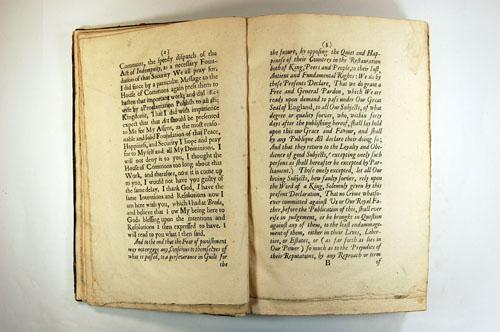 (2)
Commons, the speedy dispatch of the
Act of Indempnity, as a necessary Foun-
dation of that Security We all pray for,
I did since by a particular Message to the
House of Commons again press them to
hasten that important work; and did like-
wise by a Proclamation Publish to all the
Kingdome, That I did with impatience
expect that that Act should be presented
to Me for My Assent, as the most reaso-
nable and solid Foundation of that Peace,
Happiness, and Security I hope and pray
for to My self and all My Dominions. I
will not deny it to you, I thought the
House of Commons too long about that
Work, and therefore, now it is come up
to you, I would not have you guilty of
the same delay. I thank God, I have the
same Intentions and Resolutions now I
am here with you, which I had at Breda,
and believe that I ow My being here to
Gods blessing upon the Intentions and
Resolutions I then expressed to have. I
will read to you what I then said,
And to the end that the Fear of punishment
may not engage any Conscious to themselves of
what is passed, to a perseverance in Guilt for
the
(3)
the future, by opposing the Quiet and Hap-
piness of their Countrey in the Restauration
both of King, Peers and People, to their Just
Antient and Fundamental Rights: We do by
these Presents Declare, That We do grant a
Free and General Pardon, which We are
ready upon demand to pass under Our Great
Seal of England, to all Our Subjects, of what
degree or quality soever, who, within forty
days after the publishing hereof, shall lay hold
upon this our Grace and Favour, and shall
by any Publique Act declare their doing so;
And that they return to the Loyalty and Obe-
dience of good Subjects, (excepting onely such
persons as shall hereafter be excepted by Par-
liament.) Those onely excepted, let all Our
loving Subjects, how faulty soever, rely upon
the Word of a King, Solemnly given by this
present Declaration, That no Crime whatso-
ever committed against Us or Our Royal Fa-
ther, before the Publication of this, shall ever
rise in judgement, or be brought in Question
against any of them, to the least endammage-
ment of them, either in their Lives, Liber-
ties, or Estates, or (as far forth as lies in
Our Power) so much as to the Prejudice of
their Reputations, by any Reproach or term
B of